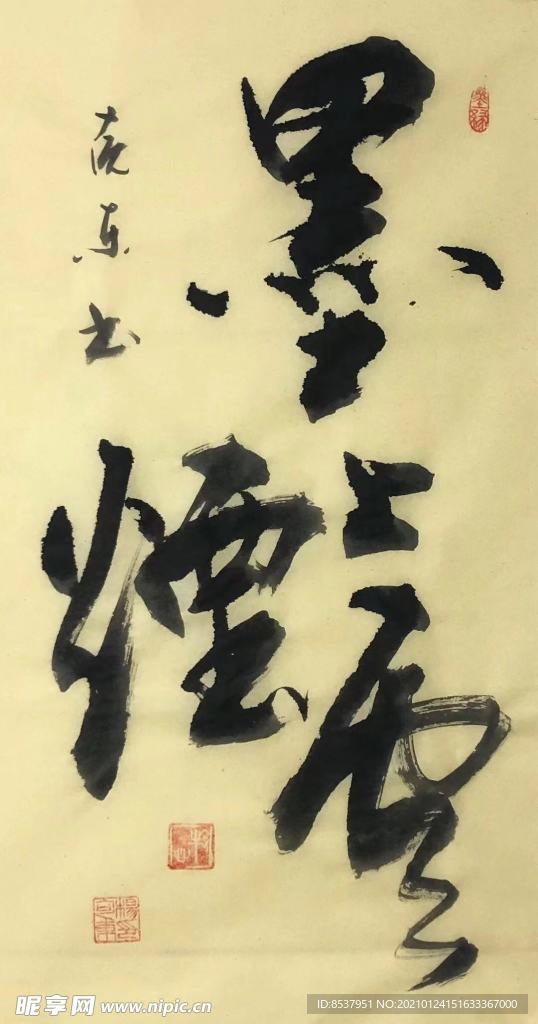 墨上雲
煙
东书
墨緣
昵享网 www.nipic.cn
ID:8537951 NO:20210124151633367000